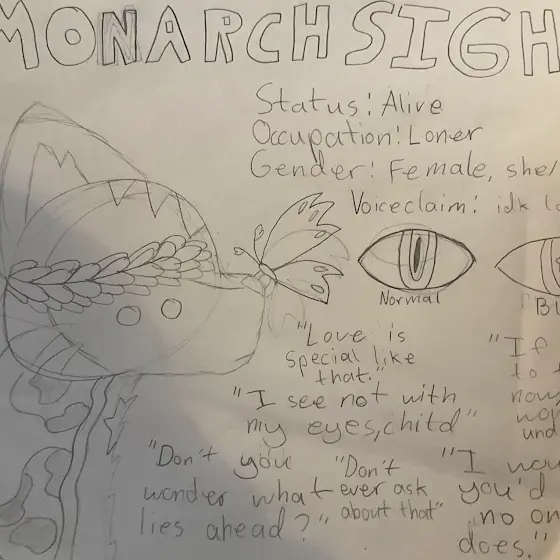 MONARCH SIGH
Status: Alive
Occupation: Loner
Gender: Female, she/
Voiceclaim: idk lo
Normal
Bl
"Love is
special like
that."
"I see not with
my eyes, child"
"Don't you
wonder what
lies ahead?"
"Don't
ever ask
about that"
"If
to t
now,
wo
und
"I wou
you'd
no on
does."